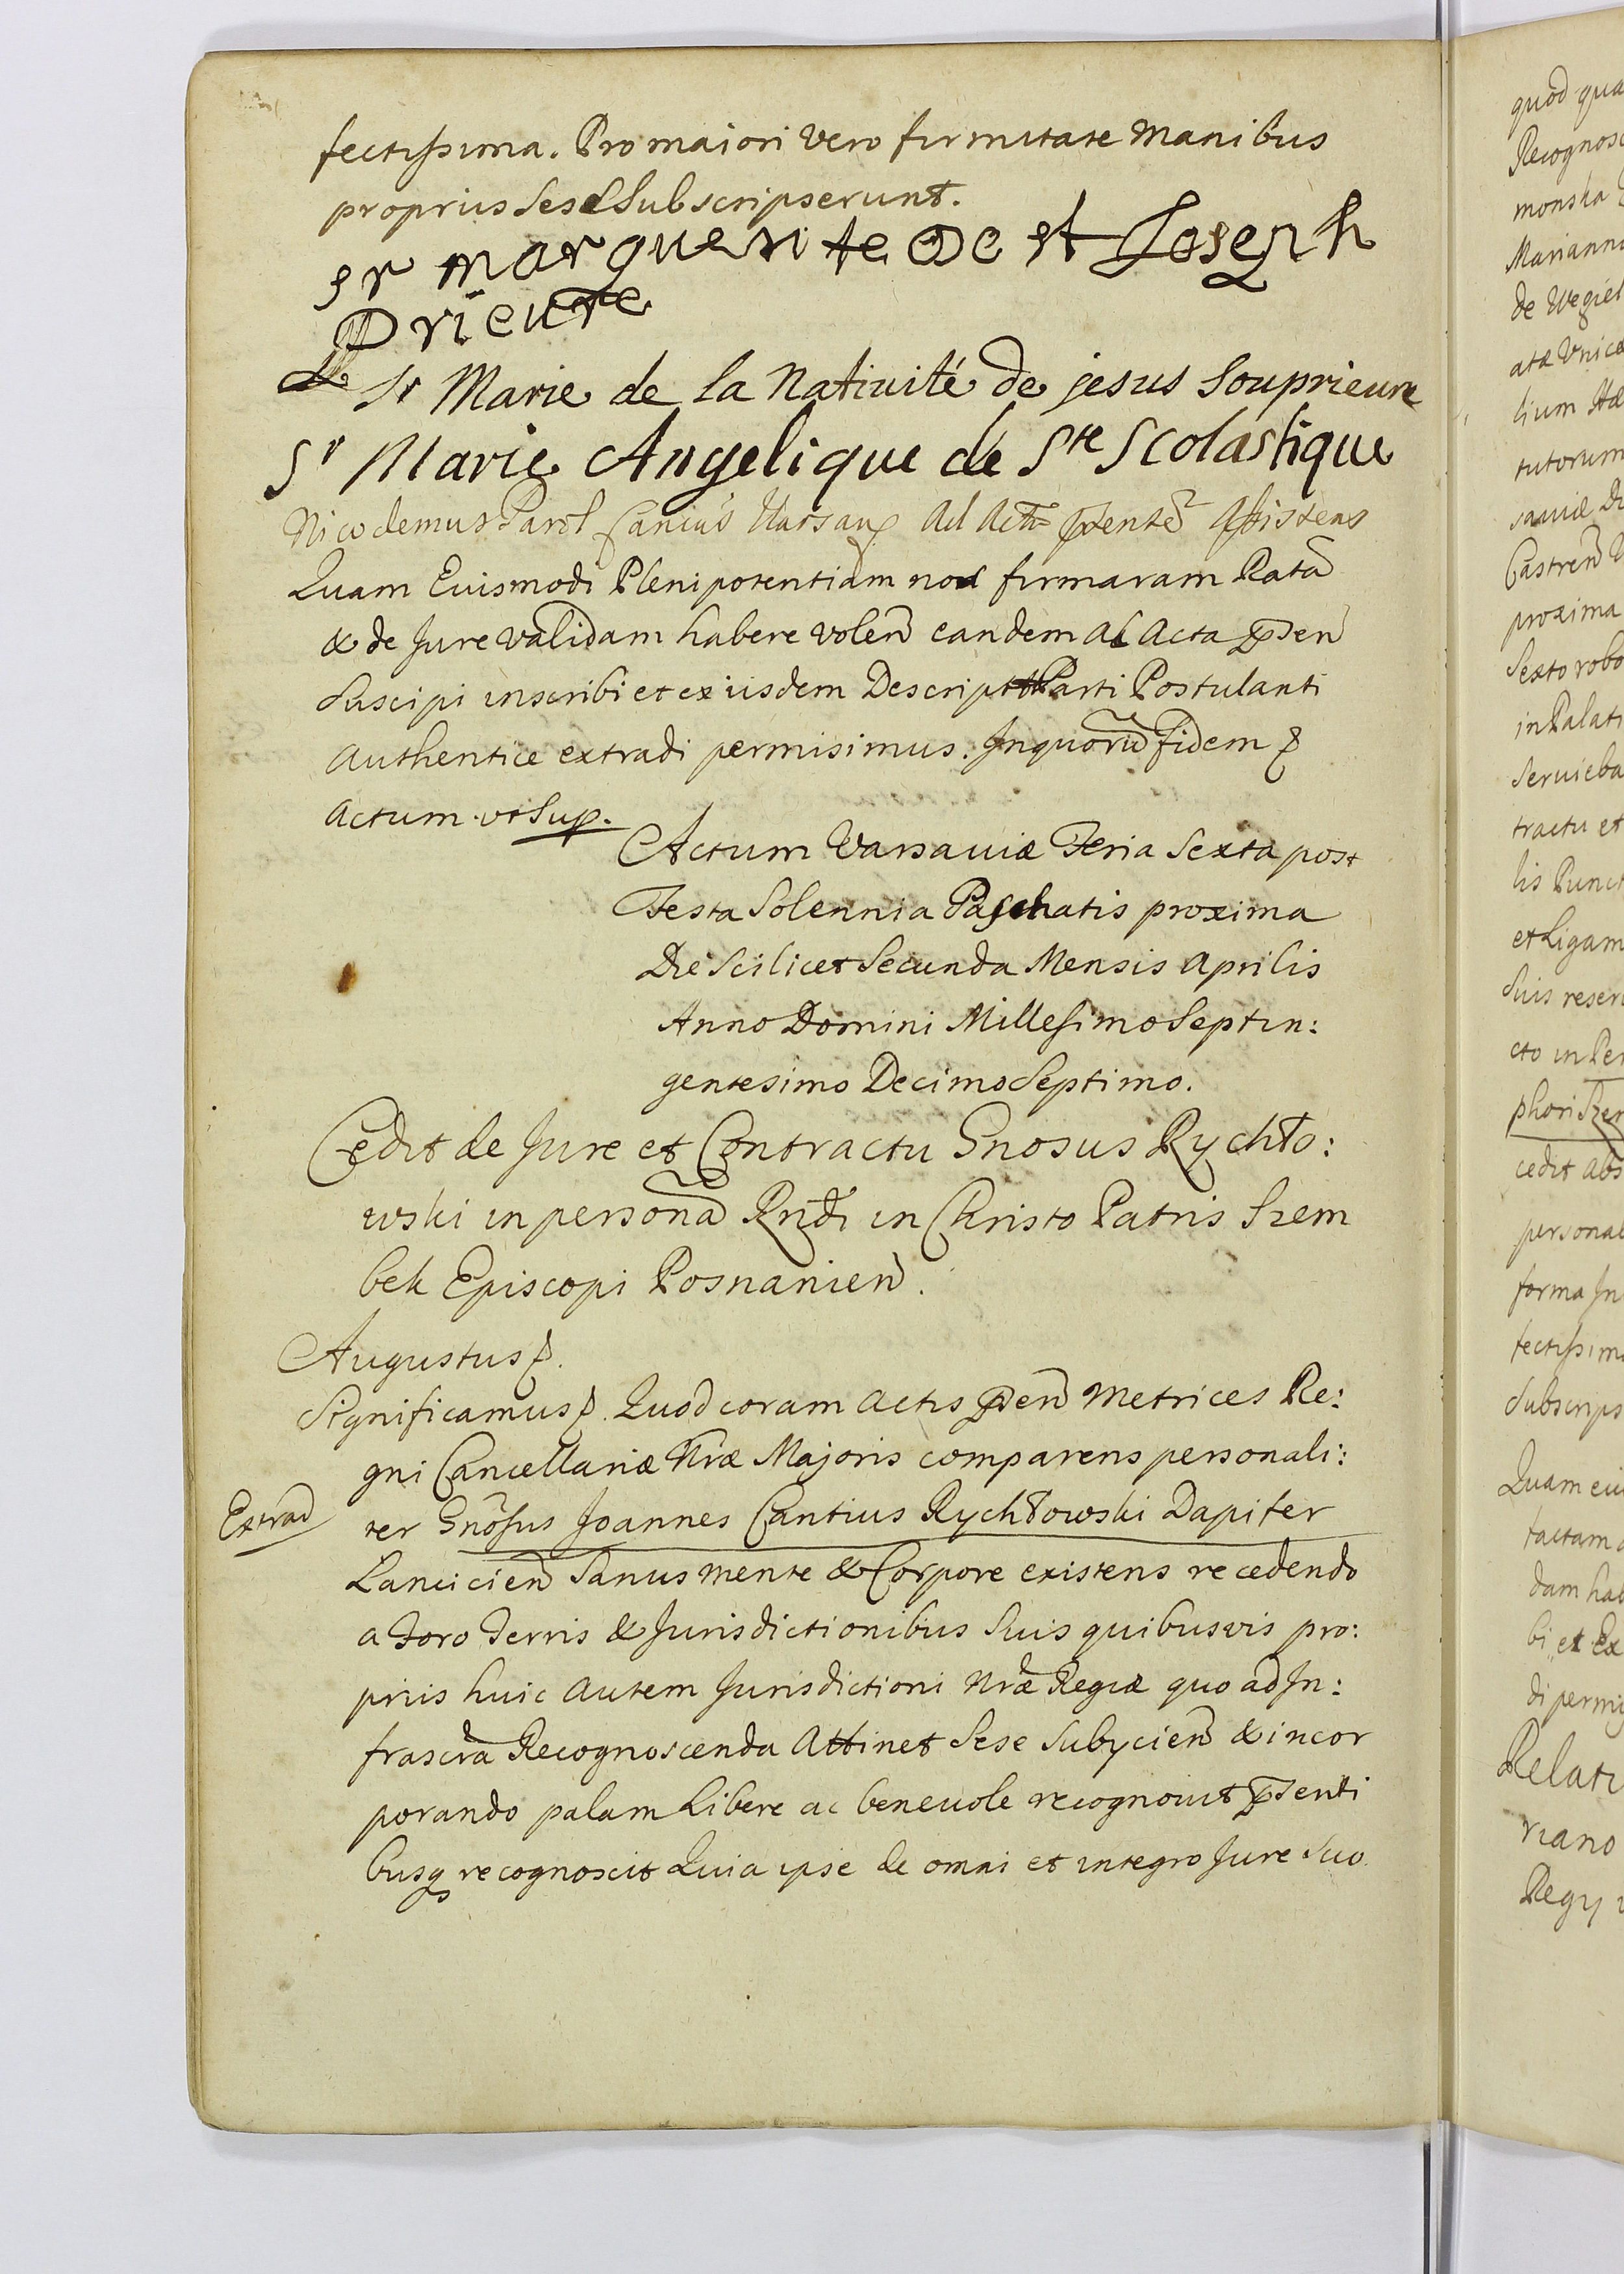 fectissima. Pro maiori vero firmitate manibus
proprius Sese Subscripserunt.
sr marguerite De st Joseph
Prieure
Sr Marie de la Nativité de jesus Souprieure
Sr Marie Angelique de Ste Scolastique
Nicodemus Ad Assistens
Quam Euismodi Plenipotentiam nos firmatam Ratam̃
& de Jure validam habere volen̄ eandem ad Acta p̄sen̄
Suscipi inscribi et ex iisdem Descript Parti Postulanti
Authentice extradi permisimus. In quorū fidem &
Actum ut Sup.
Actum Varsaviæ Feria Sexta post
Festa Solennia Paschatis proxima
Die Scilicet Secunda Mensis Aprilis
Anno Domini Millesimo Septin:
gentesimo Decimo Septimo.
Cedit de Jure et Contractu Gnosus Rychło:
wski in personā Rn̄di in Christo Patris Szem
bek Episcopi Posnanien̄.
Augustus &.
Significamus &. Quod coram Actis p̄sen̄ Metrices Re:
gni Cancellariæ Nr̄æ Majoris comparens personali:
Extrad
ter Gnōsus Joannes Cantius Rychłowski Dapifer
Lancicien̄ Sanus mente & Corpore existens recedendo
a Foro Terris & Jurisdictionibus Suis quibusvis pro:
priis huic Autem Jurisdictioni Nr̄æ Regiæ quo ad In:
frascr̄a Recognoscenda Attinet Sese Subycien̄ & incor
porando palam Libere ac benevole recognovit p̄senti
busq recognoscit Quia ipse de omni et integro Jure Suo
quod qua
Recognosc
monska
Marianna
de Wegiel
atæ Unica
lium Hæ
tutorum
saviæ Di
Castren̄
proxima
Sexto robo
in Palati
Servieba
tractu et
lis Punct
et Ligam
Suis reser
cto in Per
phori Szem
cedit abs
personal
forma In
fectissima
Subscrips
Quam eui
factam
dam hab
bi et Ex
di permis
Relati
riano
Regy